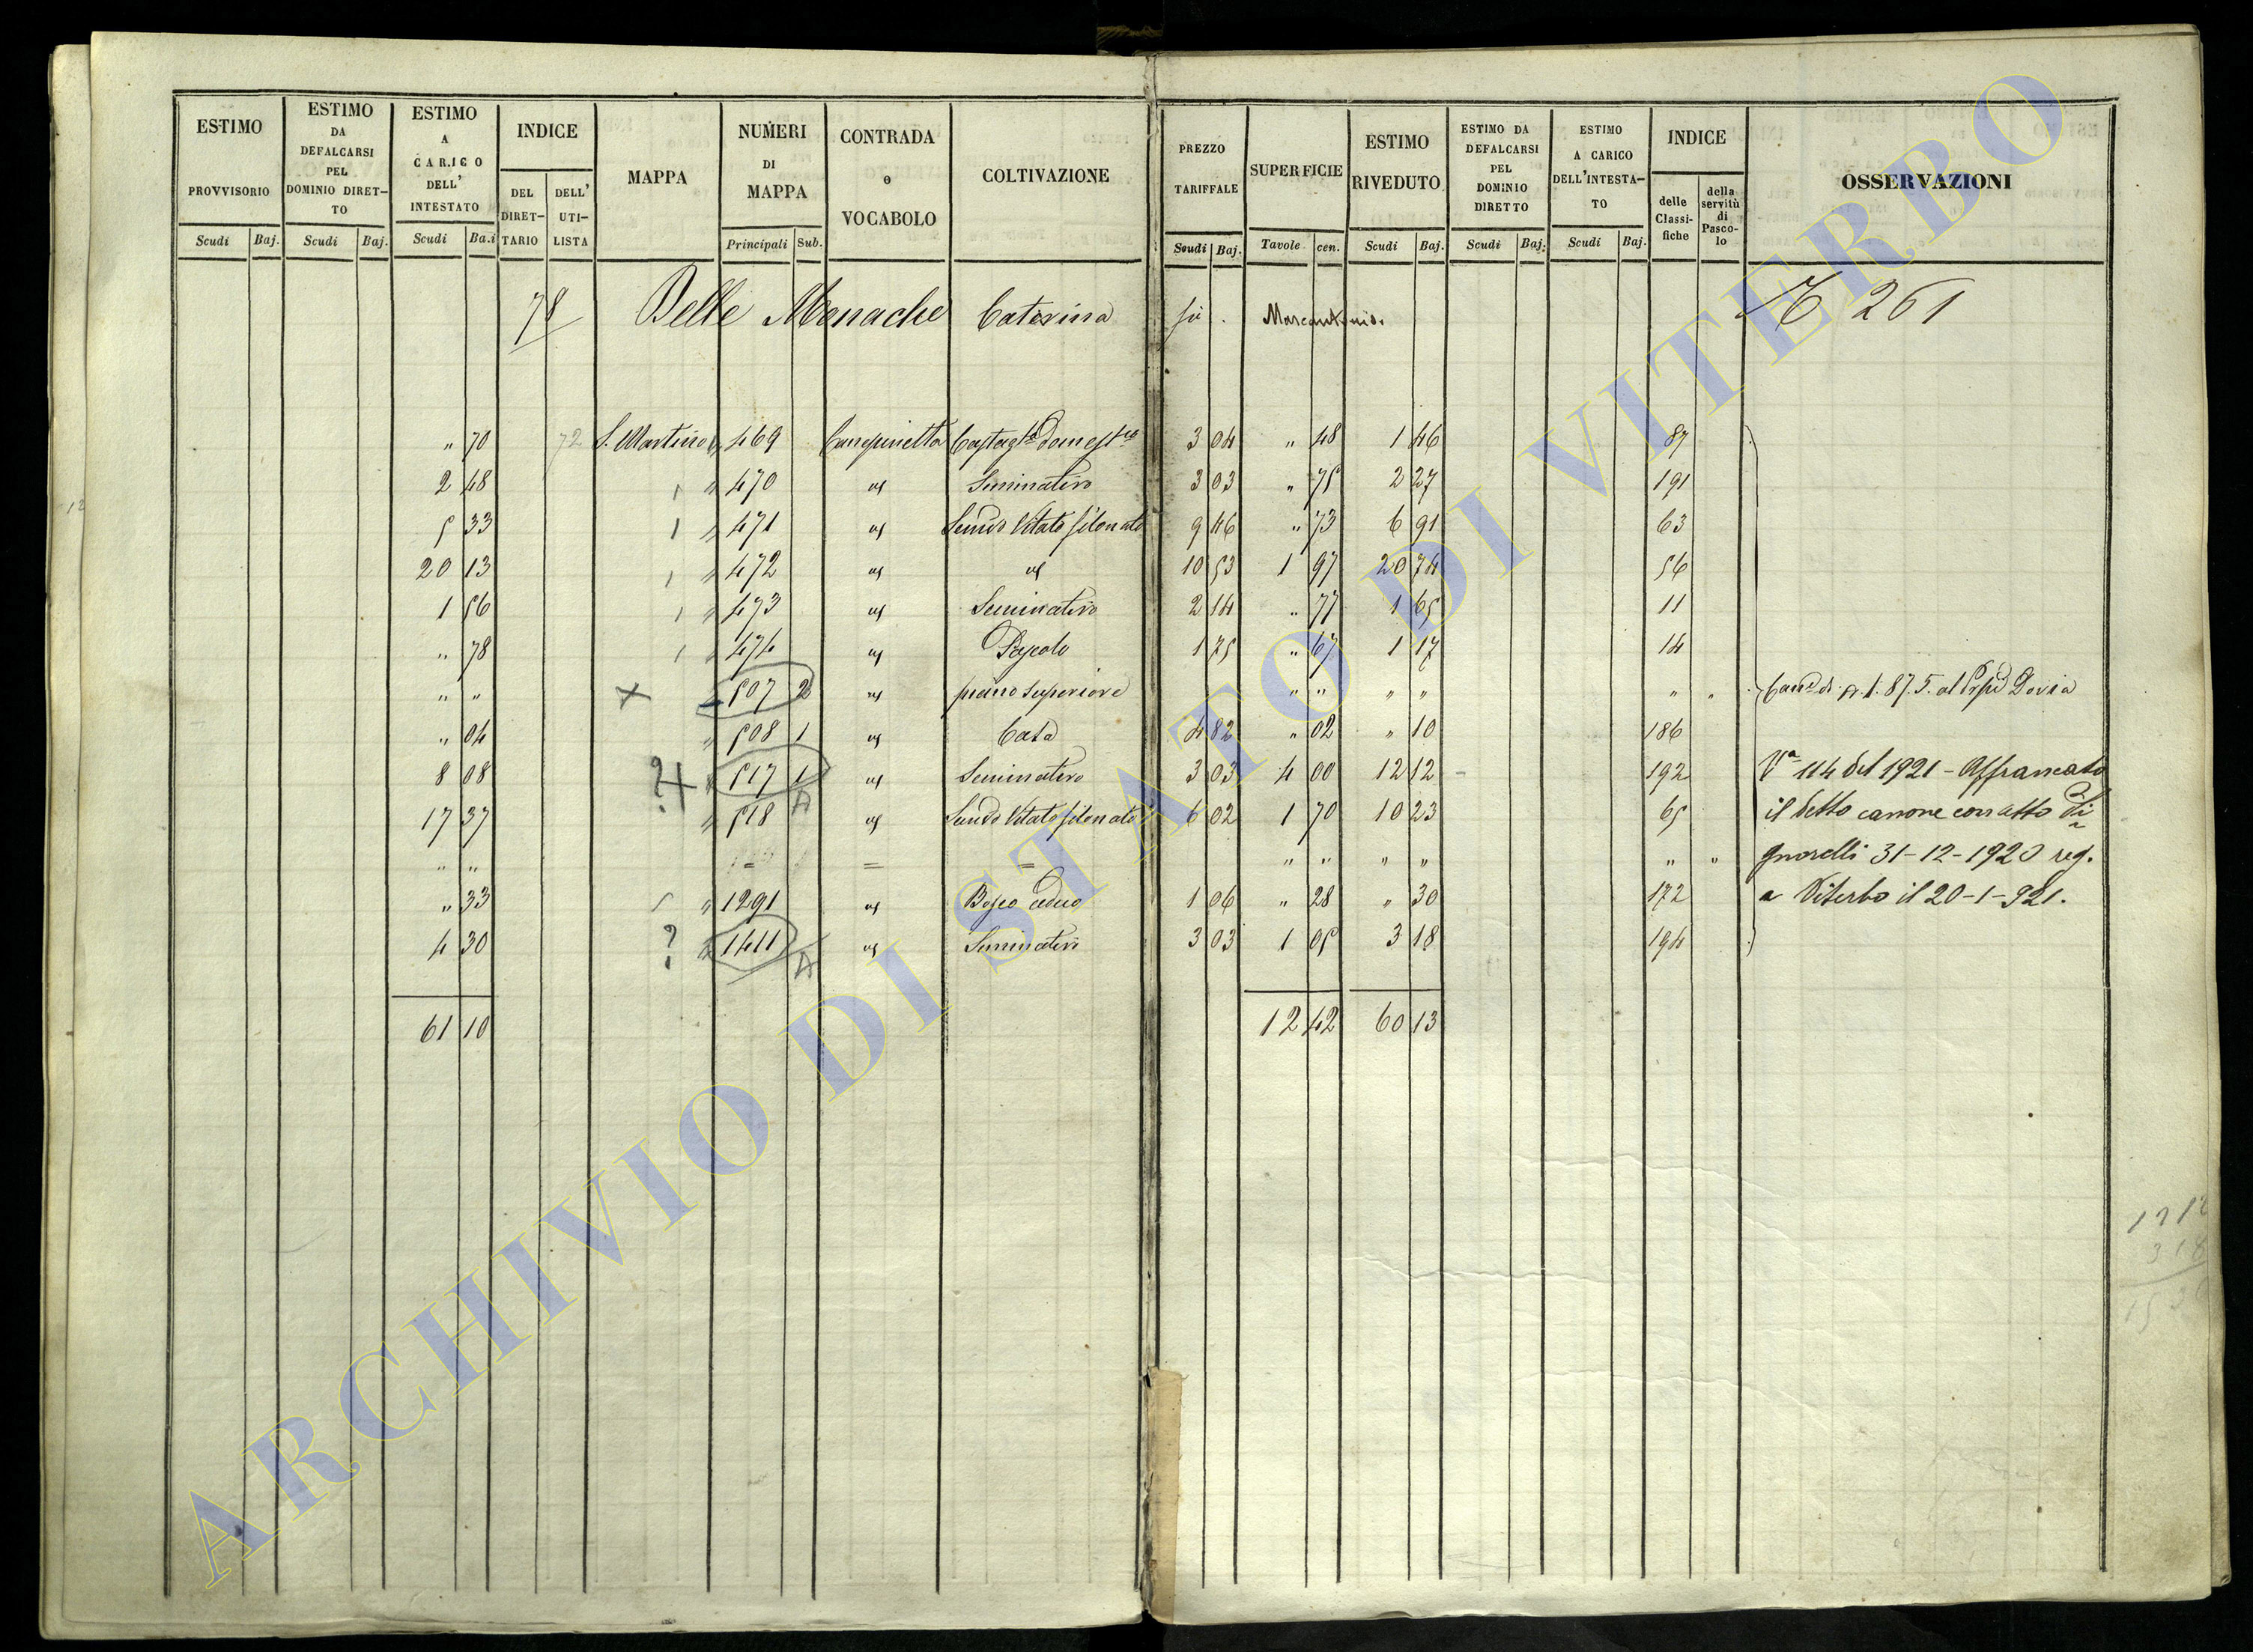 ESTIMO PROVVISORIO Scudi Baj.
ESTIMO DA DEFALCARSI PEL DOMINIO DIRET- TO Scudi Baj.
ESTIMO A CARICO DELL' INTESTATO Scudi Ba.i
INDICE DEL DIRET- TARIO DELL' UTI- LISTA
MAPPA
NUMERI DI MAPPA Principali Sub.
CONTRADA o VOCABOLO
COLTIVAZIONE
PREZZO TARIFFALE Scudi Baj.
SUPERFICIE Tavole cen.
ESTIMO RIVEDUTO Scudi Baj.
ESTIMO DA DEFALCARSI PEL DOMINIO DIRETTO Scudi Baj.
ESTIMO A CARICO DELL'INTESTA- TO Scudi Baj.
INDICE delle Classi- fiche della servitù di Pasco- lo
OSSERVAZIONI
78 Delle Monache Caterina fù Marcantonio. 261
" 70 72 S. Martino " 469 Castag.o domest.co 3 04 " 48 1 46 87
2 48 " 470 " Seminativo 3 03 " 75 2 27 191
5 33 " 471 " Semvo Vitato filonato 9 46 " 73 6 91 63
20 13 " 472 " " 10 53 1 97 20 74 56
1 56 " 473 " Seminativo 2 14 " 77 1 65 11
" 78 " 474 " Pascolo 1 75 " 67 1 17 14
" " " 507 2 " piano superiore " " " " " " di 1.87.5. al Doria
" 04 " 508 1 " Casa 4 82 " 02 " 10 186
8 08 ? " 517 1 " Seminativo 3 03 4 00 12 12 192 Va 114 del 1921 - Affrancato
17 37 " 518 " Semvo Vitato filonato 6 02 1 70 10 23 65 il detto canone con atto Di
" " = = = " " " " " " gnorelli 31-12-1920 reg.
" 33 " 1291 " Bosco ceduo 1 06 " 28 " 30 172 a Viterbo il 20-1-921.
4 30 ? " 1411 " Seminativo 3 03 1 05 3 18 194
61 10 12 42 60 13
12
12 12
3 18
ARCHIVIO DI STATO DI VITERBO